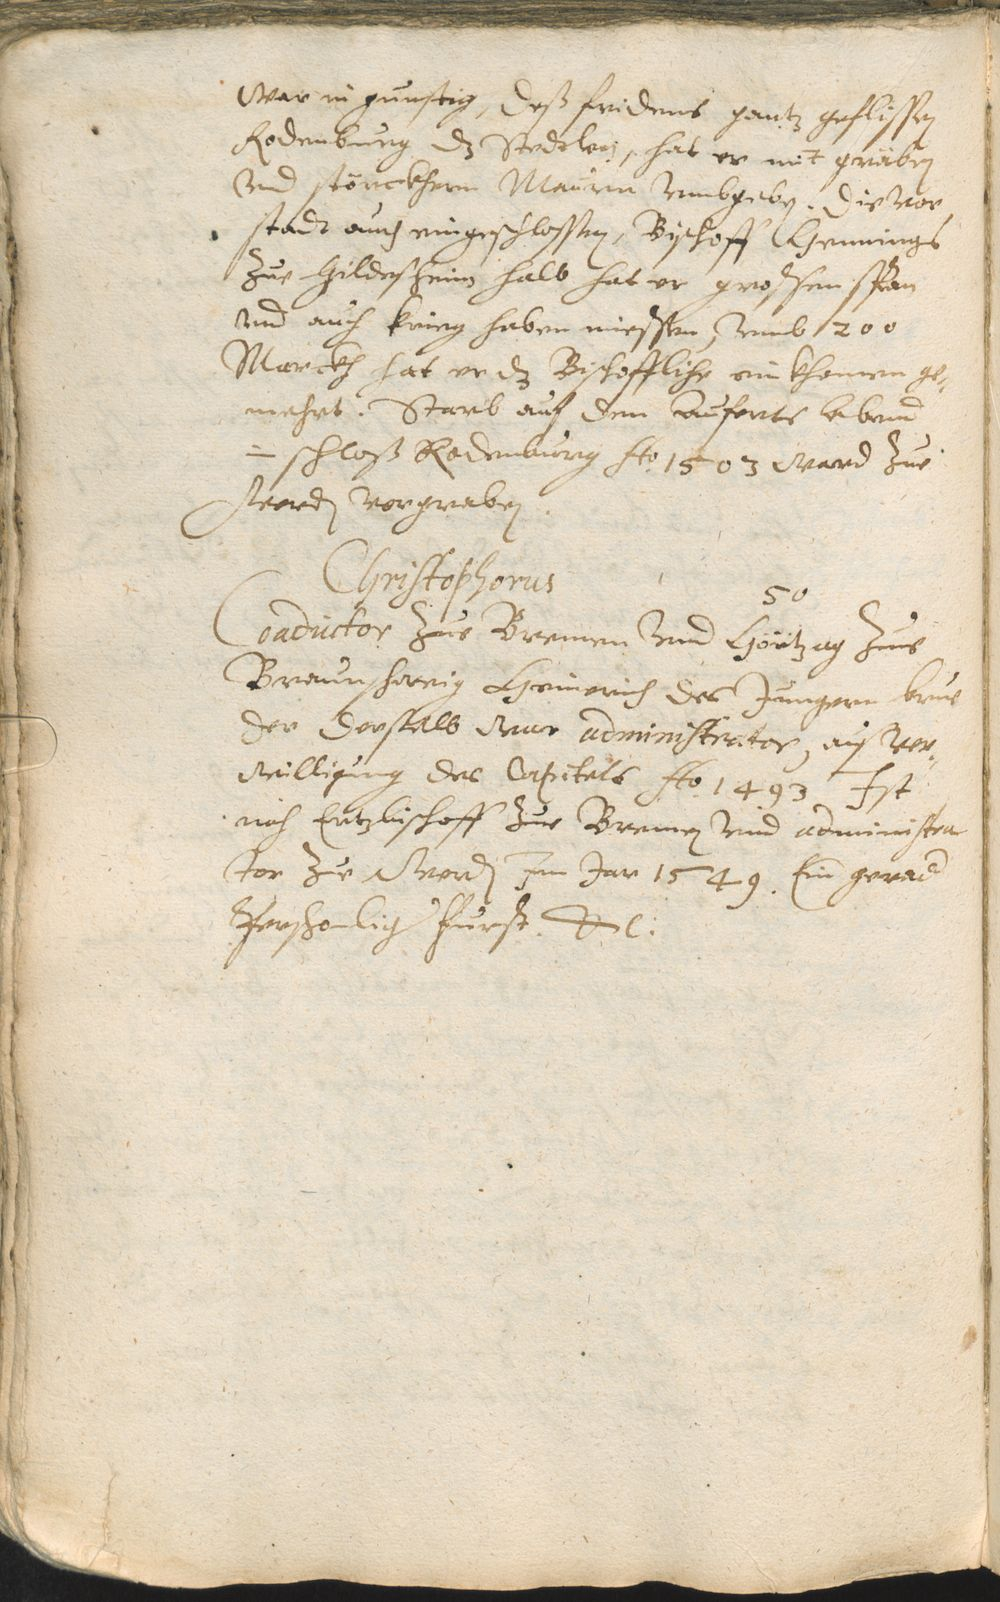 War in gunstig, deß fridens gantz geflissen
Rodenburg dz Stedtlein, hat er mit gräben
vnd störckhern Mauren vmbgeben. Die vor
stadt auch eingeschlossen, Bischoff Hennings
zue Hildesheim halb hat er grossen span
vnd auch krieg haben miessen, vmb 200
Marckh hat er dz Bischoffliche einkhomen ge-
mehrt. Starb auf dem abend
im schloß Rodenburg Ao 1503 ward zue
Verden vergraben.
Christophorus
50
Coadiutor zue Bremen vnd Hörtzog zue
Braunschweig Heinerich des Jungern brue
der derselb war administrator, auß ver-
willigung des Capitels Ao 1493 Ist
noch Ertzbischoff zue Bremen vnd administra
tor zue Verden Im Jar 1549. Ein gerad
Persohnlich Fürst. &c: